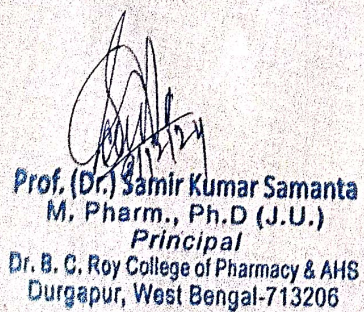 Prof. (Dr.) Samir Kumar Samanta
M. Pharm., Ph.D (J.U.)
Principal
Dr. B. C. Roy College of Pharmacy & AHS
Durgapur, West Bengal-713206